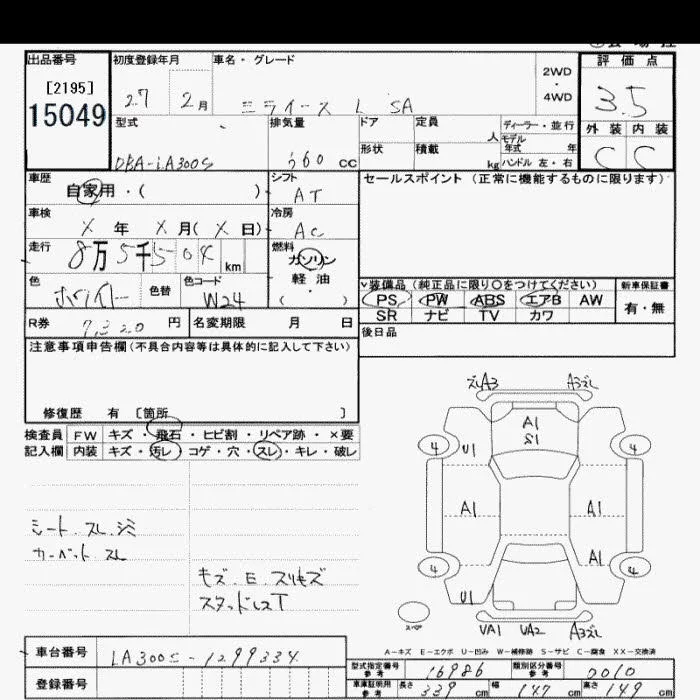 出品番号
[2195]
15049
初度登録年月
27 2月
車名・グレード
ミライース L SA
2WD
・
4WD
評価点
3.5
外装 内装
C C
型式
DBA-LA300S
排気量
660 CC
ドア
形状
定員
人
積載
kg
ディーラー・並行
モデル
年式 年
ハンドル 左・右
車歴
自家用・( )
シフト
AT
セールスポイント (正常に機能するものに限ります)
車検
X 年 X 月( X 日)
冷房
AC
走行
8万5千504 km
燃料
ガソリン
軽油
( )
色
ホワイト
色替
色コード
W24
∨装備品 (純正品に限り○をつけてください)
PS PW ABS エアB AW
SR ナビ TV カワ
新車保証書
有・無
R券
7,320 円
名変期限 月 日
後日品
注意事項申告欄(不具合内容等は具体的に記入して下さい)
修復歴 有 〔箇所 〕
検査員
記入欄
FW キズ・飛石・ヒビ割・リペア跡・×要
内装 キズ・汚レ・コゲ・穴・スレ・キレ・破レ
シート スレ シミ
カーペット スレ
キズ E スリキズ
スタッドレスT
ズレA3 A3ズレ
A1
S1
4 U1 4
A1 A1
A1
4 4
U1
スペア
UA1 UA2 A3ズレ
A-キズ E-エクボ U-凹み W-補修跡 S-サビ C-腐食 XX-交換済
車台番号
LA300S-1299334
登録番号
型式指定番号
参考
16986
類別区分番号
参考
0010
車庫証明用
参考
長さ 339 cm 幅 147 cm 高さ 149 cm